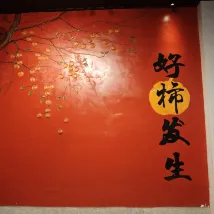 好柿发生